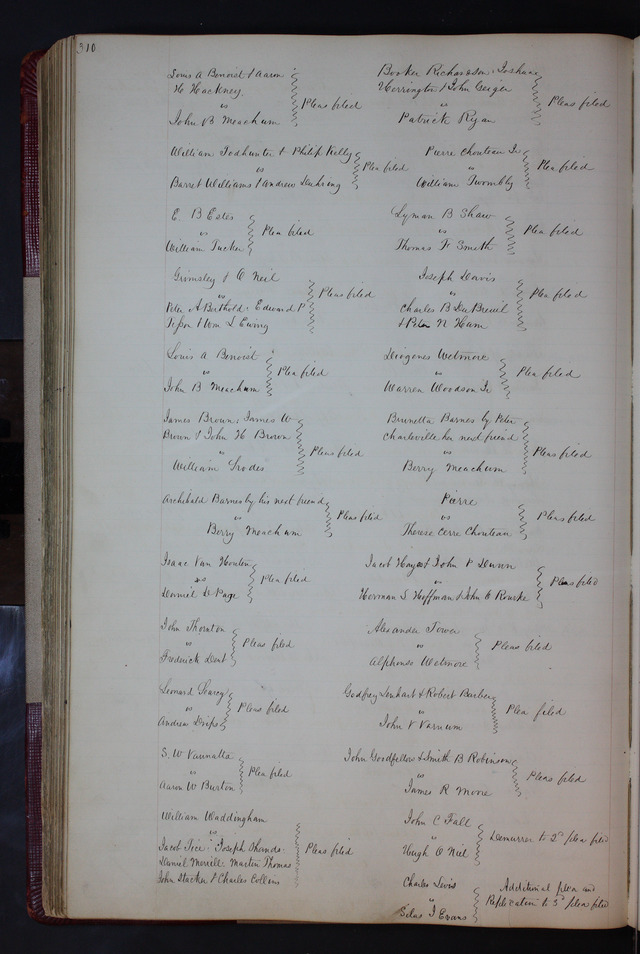 310
Louis A Benoist & Aaron
H Hackney
vs
John B Meachum
Pleas filed
William Todhunter & Philip Kelly
vs
Barret Williams & Andrew
Plea filed
E. B Estes
vs
William Tucker
Plea filed
Grimsley & O Neil
vs
Peter A Berthold: Edward P
Tesson & Wm L Ewing
Pleas filed
Louis A Benoist
vs
John B Meachum
Plea filed
James Brown: James W
Brown & John H Brown
vs
William
Pleas filed
Archibald Barnes by his next friend
vs
Berry Meachum
Pleas filed
Isaac Van Houten
vs
Daniel D Page
Plea filed
John Thornton
vs
Frederick Dent
Pleas filed
Leonard Searcy
vs
Andrew Drips
Pleas filed
S. W Vannatta
vs
Aaron W Burton
Plea filed
William Waddingham
vs
Jacob Tice: Joseph
Daniel Merrill: Martin Thomas
John Stacker & Charles Collins
Pleas filed
Booker Richardson: Joshua
Herrington & John Geiger
vs
Patrick Ryan
Pleas filed
Pierre Chouteau Jr
vs
William Twombly
Plea filed
Lyman B Shaw
vs
Thomas F Smith
Plea filed
Joseph Davis
vs
Charles B DuBreuil
& Peter N Ham
Plea filed
Diogenes Wetmore
vs
Warren Woodson Jr
Plea filed
Brunetta Barnes by Peter
Charleville her next friend
vs
Berry Meachum
Pleas filed
Pierre
vs
Therese Cerre Chouteau
Pleas filed
Jacob Hays & John P Dunn
vs
Herman S Hoffman & John O Rourke
Pleas filed
Alexander Tower
vs
Alphonso Wetmore
Pleas filed
Godfrey Lenhart & Robert Barber
vs
John V Varnum
Plea filed
John Goodfellow & Smith B Robinson
vs
James R Moore
Pleas filed
John C Fall
vs
Hugh O Neil
Demurrer to 2d plea filed
Charles Lewis
vs
Silas J Evans
Additional plea and
Replication to 3d plea filed